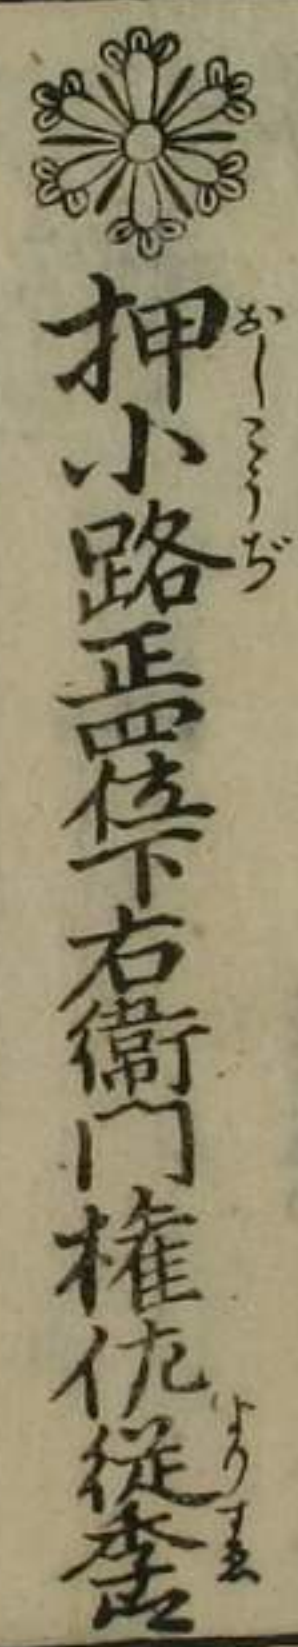 押小路正四位下右衛門権佐従季
おしこうぢ
よりすゑ